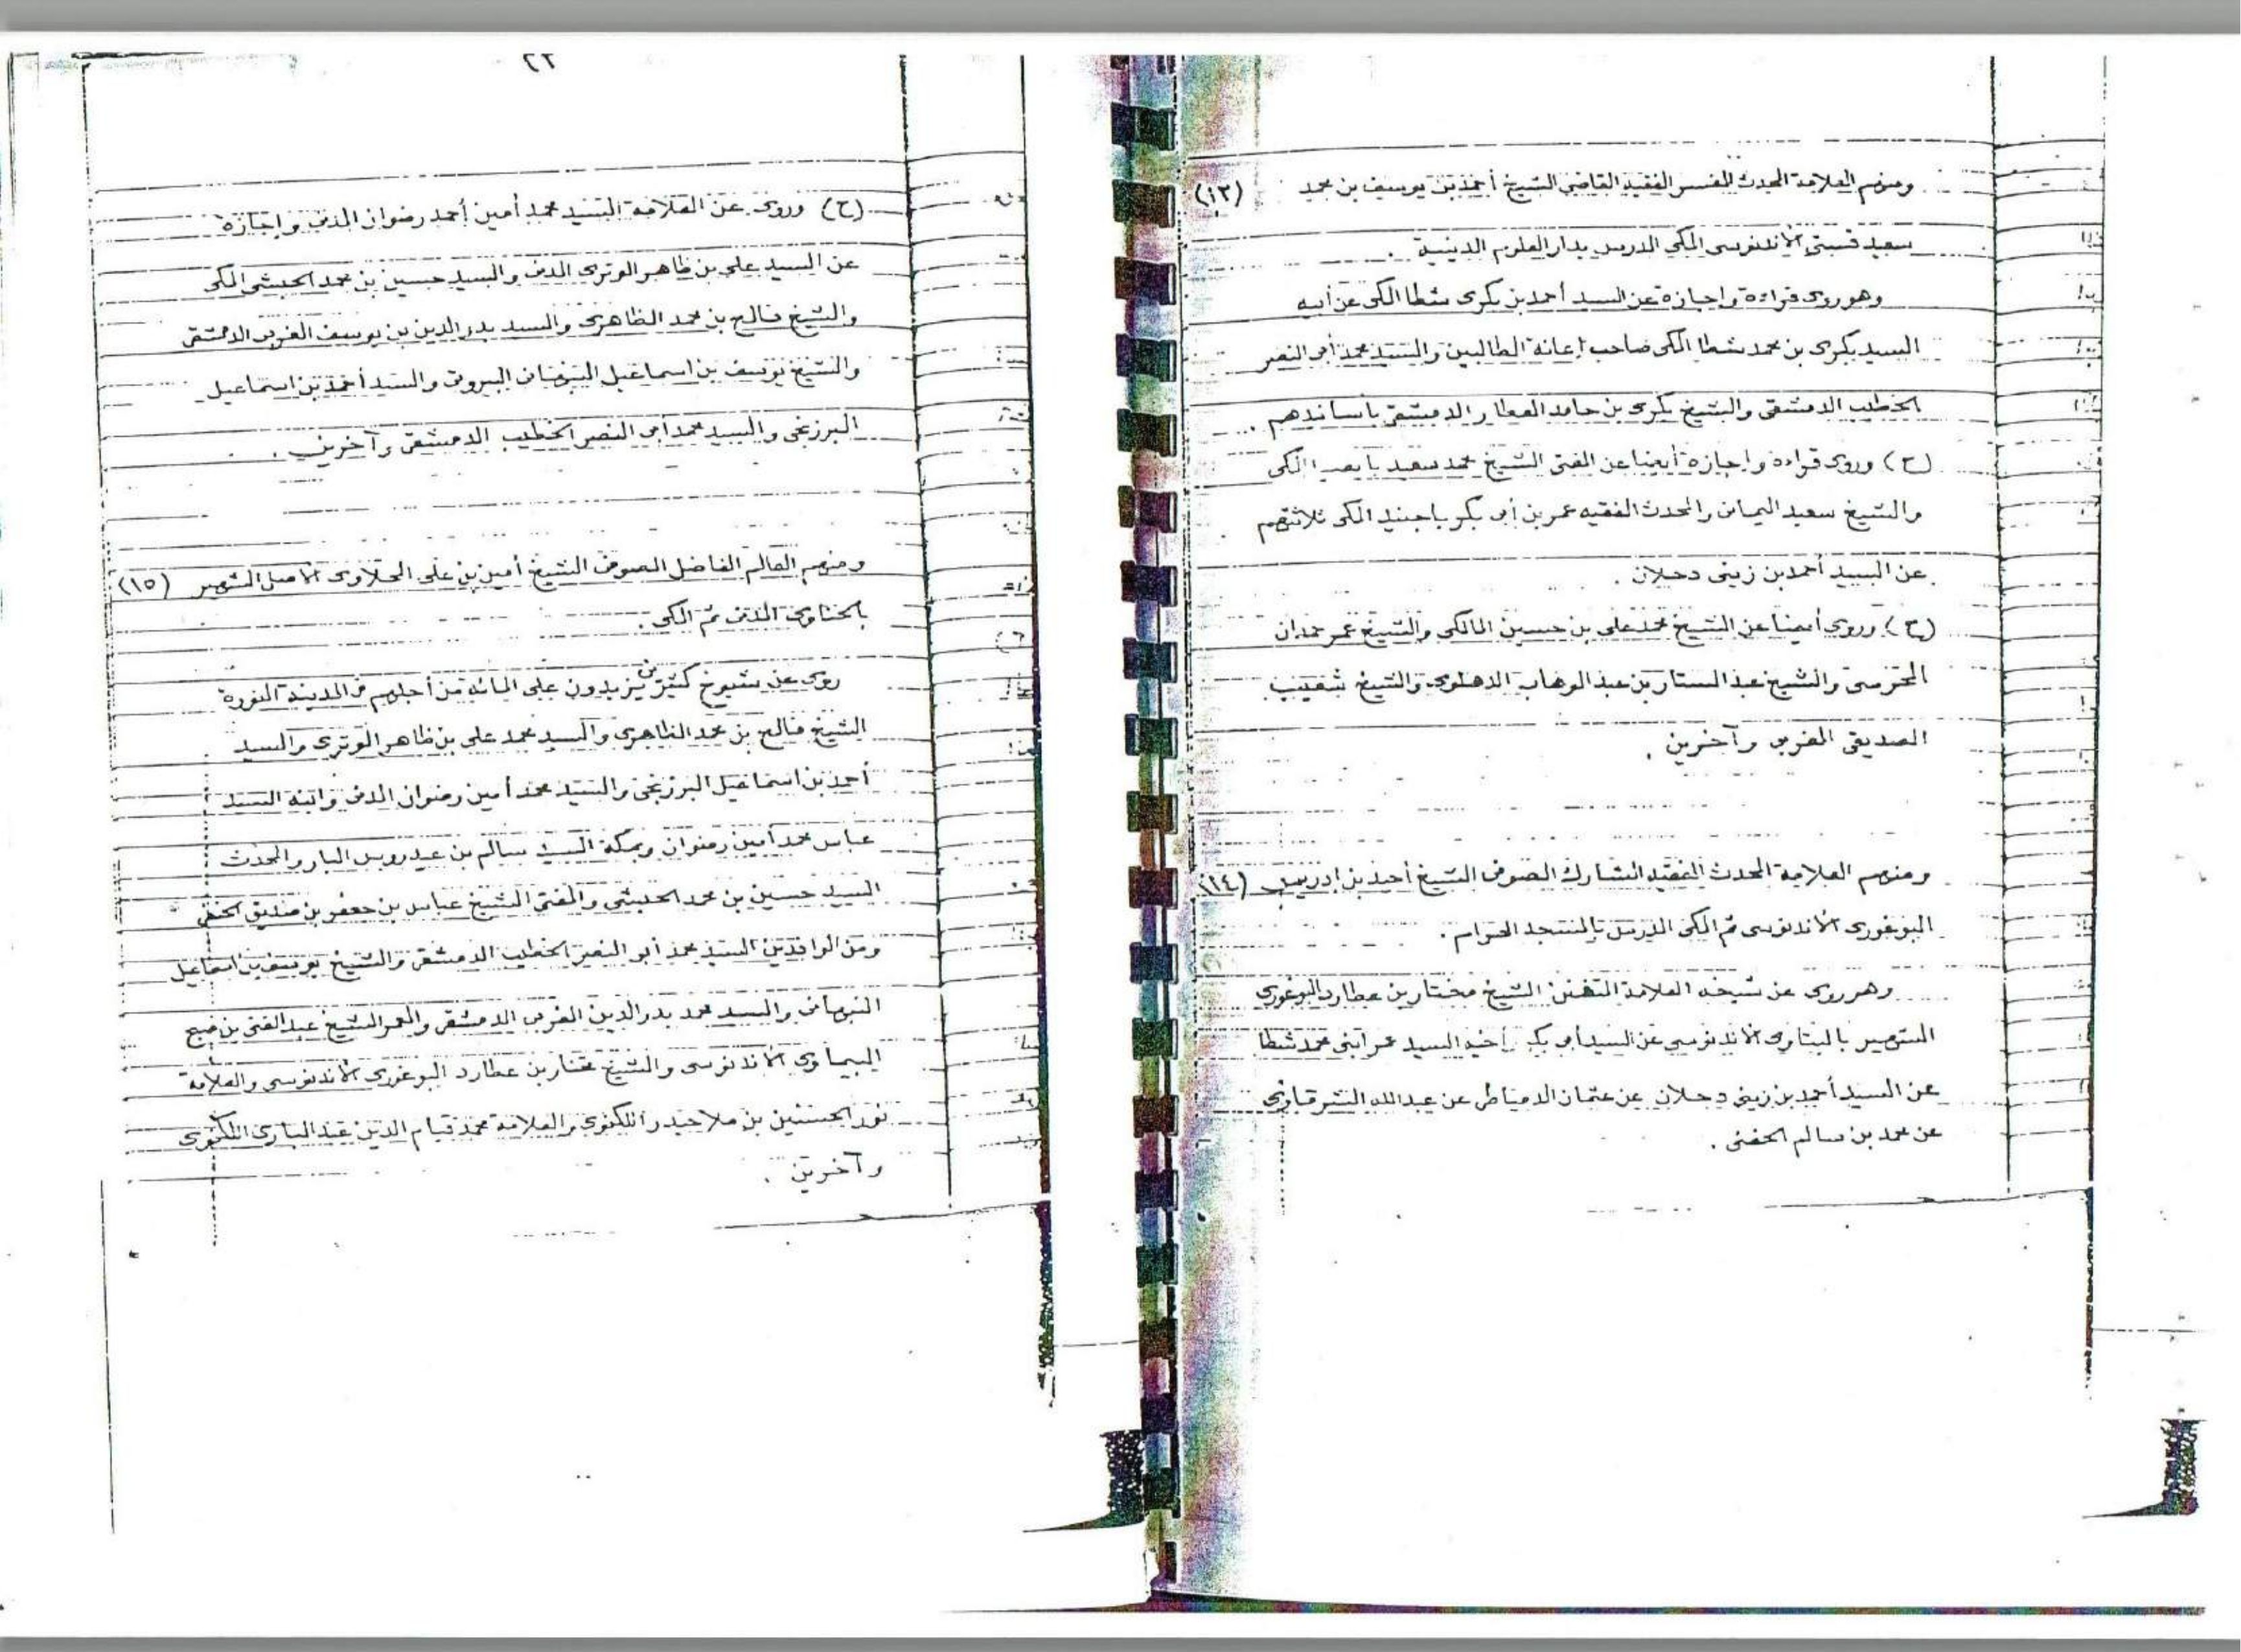 ومنهم العلامة المحدث المفسر الفقيه القاضي الشيخ أحمد بن يوسف بن محمد (١٣)
سعيد قستي الأندنوسى المكى المدرس بدار العلوم الدينية .
وهو روى قراءة وإجازة عن السيد أحمد بن بكرى شطا المكى عن أبيه
السيد بكرى بن محمد شطا المكى صاحب إعانة الطالبين والسيد محمد أبى النصر
الخطيب الدمشقى والشيخ بكرى بن حامد العطار الدمشقى بأسانيدهم .
(ح) وروى قراءة وإجازة أيضا عن المفتى الشيخ محمد سعيد بابصيل المكى
والشيخ سعيد اليمانى والمحدث الفقيه عمر بن أبى بكر باجنيد المكى ثلاثتهم
عن السيد أحمد بن زينى دحلان .
(ح) وروى أيضا عن الشيخ محمد على بن حسين المالكى والشيخ عمر حمدان
المحرسى والشيخ عبد الستار بن عبد الوهاب الدهلوى والشيخ شعيب
الصديقى المغربى وآخرين .
ومنهم العلامة المحدث الفقيه المشارك الصوفى الشيخ أحيد بن إدريس (١٤)
البوغورى الأندنوسى ثم المكى المدرس بالمسجد الحرام .
وهو روى عن شيخه العلامة المتفنن الشيخ مختار بن عطارد البوغورى
الشهير بالبتاوى الأندنوسى عن السيد أبى بكر أخيه السيد عمر ابنى محمد شطا
عن السيد أحمد بن زينى دحلان عن عثمان الدمياطى عن عبد الله الشرقاوى
عن محمد بن سالم الحفنى .
٢٢
(ح) وروى عن العلامة السيد محمد أمين أحمد رضوان المدنى وإجازة
عن السيد على بن ظاهر الوترى المدنى والسيد حسين بن محمد الحبشى المكى
والشيخ فالح بن محمد الظاهرى والسيد بدر الدين بن يوسف المغربى الدمشقى
والشيخ يوسف بن اسماعيل النبهانى البيروتى والسيد أحمد بن اسماعيل
البرزنجى والسيد محمد أبى النصر الخطيب الدمشقى وآخرين .
ومنهم العالم الفاضل الصوفى الشيخ أمين بن على الحلاوى الأصل الشهير (١٥)
المدنى ثم المكى .
روى عن شيوخ كثيرين يزيدون على المائة من أجلهم فى المدينة المنورة
الشيخ فالح بن محمد الظاهرى والسيد محمد على بن ظاهر الوترى والسيد
أحمد بن اسماعيل البرزنجى والسيد محمد أمين رضوان المدنى وابنه السيد
عباس محمد أمين رضوان وبمكة السيد سالم بن عيدروس البار والمحدث
السيد حسين بن محمد الحبشى والمفتى الشيخ عباس بن جعفر بن صديق الحنفى
ومن الوافدين السيد محمد أبو النصر الخطيب الدمشقى والشيخ يوسف بن اسماعيل
النبهانى والسيد محمد بدر الدين المغربى الدمشقى والمعمر الشيخ عبد الغنى بن صبح
البيماوى الأندنوسى والشيخ مختار بن عطارد البوغورى الأندنوسى والعلامة
نور الحسنين بن ملا حيدر اللكنوى والعلامة محمد قيام الدين عبد البارى اللكنوى
وآخرين .